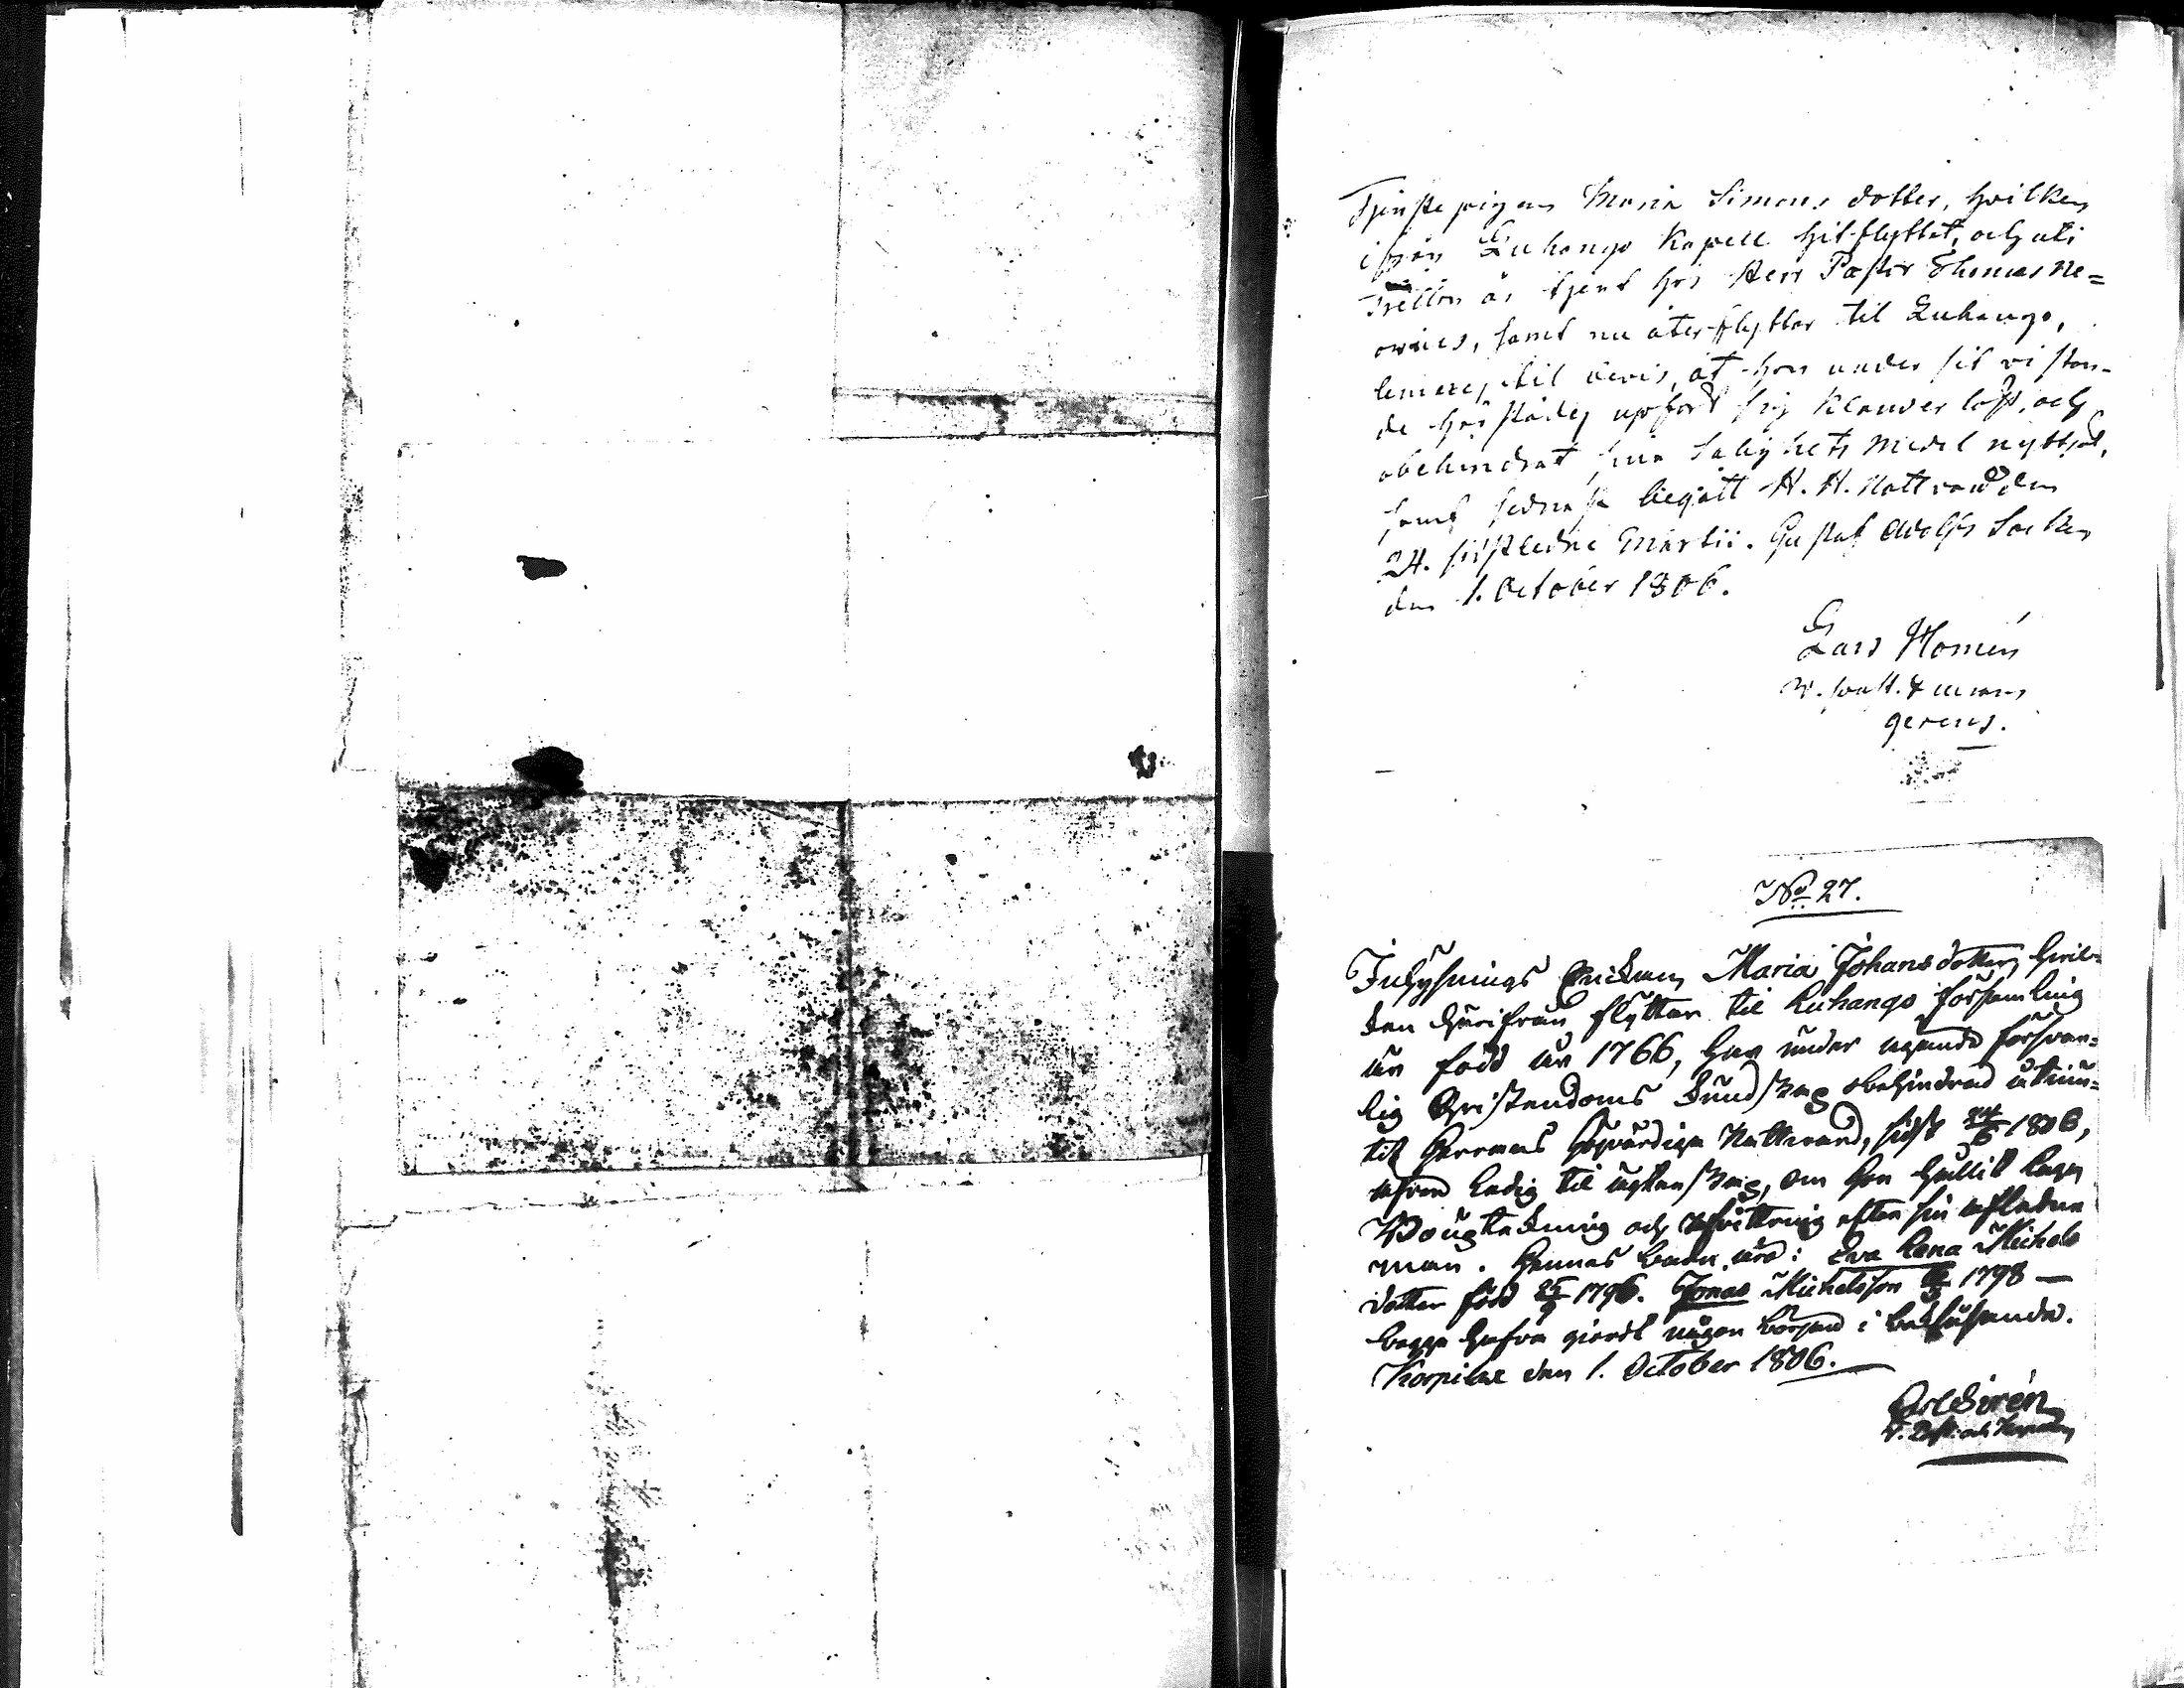 Tjenste pigan Maria Simons dotter, hvilken
ifrån Luhango Kapell hit flyttat, och uti
Tretton år tjent hos Herr Pastor Thomas Ne=
ovius, samt nu återflyttar til Luhango,
lemnas til bevis, at hon under sit vistan-
de härstädes upfört sig klanderlöst, och
obehindrat sina Salighets medel nyttjat,
samt sednast begått H. H. Nattvard den
24. sistledne Martii. Gustaf Adolfs Socken
den 1. October 1806.
Lars Homén
V. past. & munus
gerens.
No 27.
Inhysings Enkan Maria Johansdotter, hvil-
ken härifrån flyttar til Luhango församling
är född år 1766, har under ägande försvar-
lig Christendoms kundskap obehindrad åtkom-
til Herrans högvärdiga Nattvard, sidst 24/6 1806,
äfven ledig til ägtenskap, om hon hållit laga
Bouptekning och afvittring efter sin aflidne
man. Hennes barn äro: Eva Lena Michels
dotter född 25/9 1796. Jonas Michelsson 1798 —
begge hafva giordt någon början i
Korpilax den 1. October 1806.
Sirén